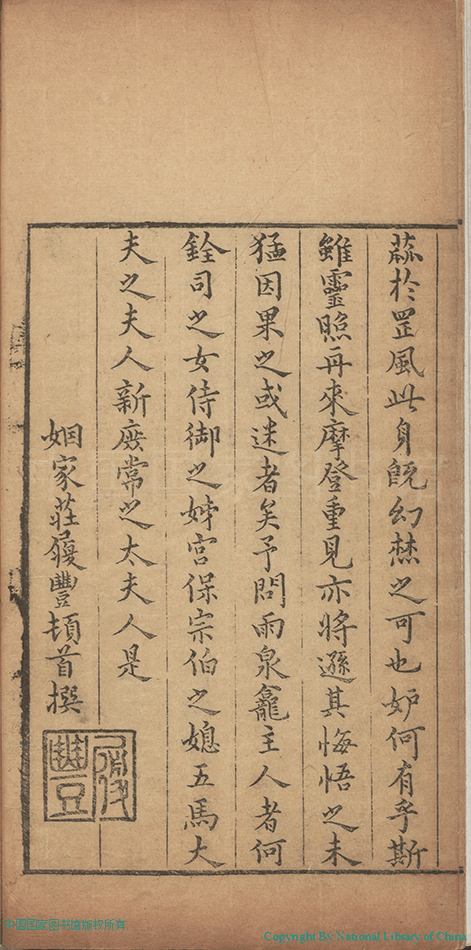 蕬於罡風此身旣幻𤎅之可也妒何有乎斯
雖靈照再來摩登重見亦將遜其悔悟之未
猛因果之或迷者矣予問雨泉龕主人者何
銓司之女侍御之姊宮保宗伯之媳五馬大
夫之夫人新廢常之太夫人是
姻家莊履豐頓首撰
履豐
©中国国家图书馆版权所有
Copyright By National Library of China